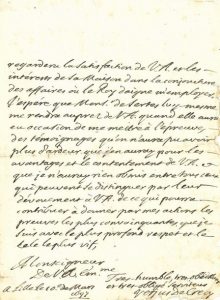 regardera la satisfaction de V.A. et les
interests de sa Maison dans la conjoncture
des affaires où le Roy daigne m'employer
J'espere que Mons.r de Vertes luy mesme
me rendra aupres de V.A. quand elle aura
eu occasion de me mettre à l'epreuve
des temoignages qu'on n'aura pu avoir
plus d'ardeur que j'en auray pour les
avantages et le contentement de V.A.
que je n'auray rien obmis entre tous ceux
qui peuvent se distinguer par leur
devouement à V.A. de ce qui pourra
contribuer à donner par mes actions les
preuves les plus convainquantes que je
suis avec le plus profond respect et le
zele le plus vif,
Monseigneur
De V.A.
a Lille le 10.e de Mars
1697
Tres humble, tres obeissant
et tres obligé serviteur